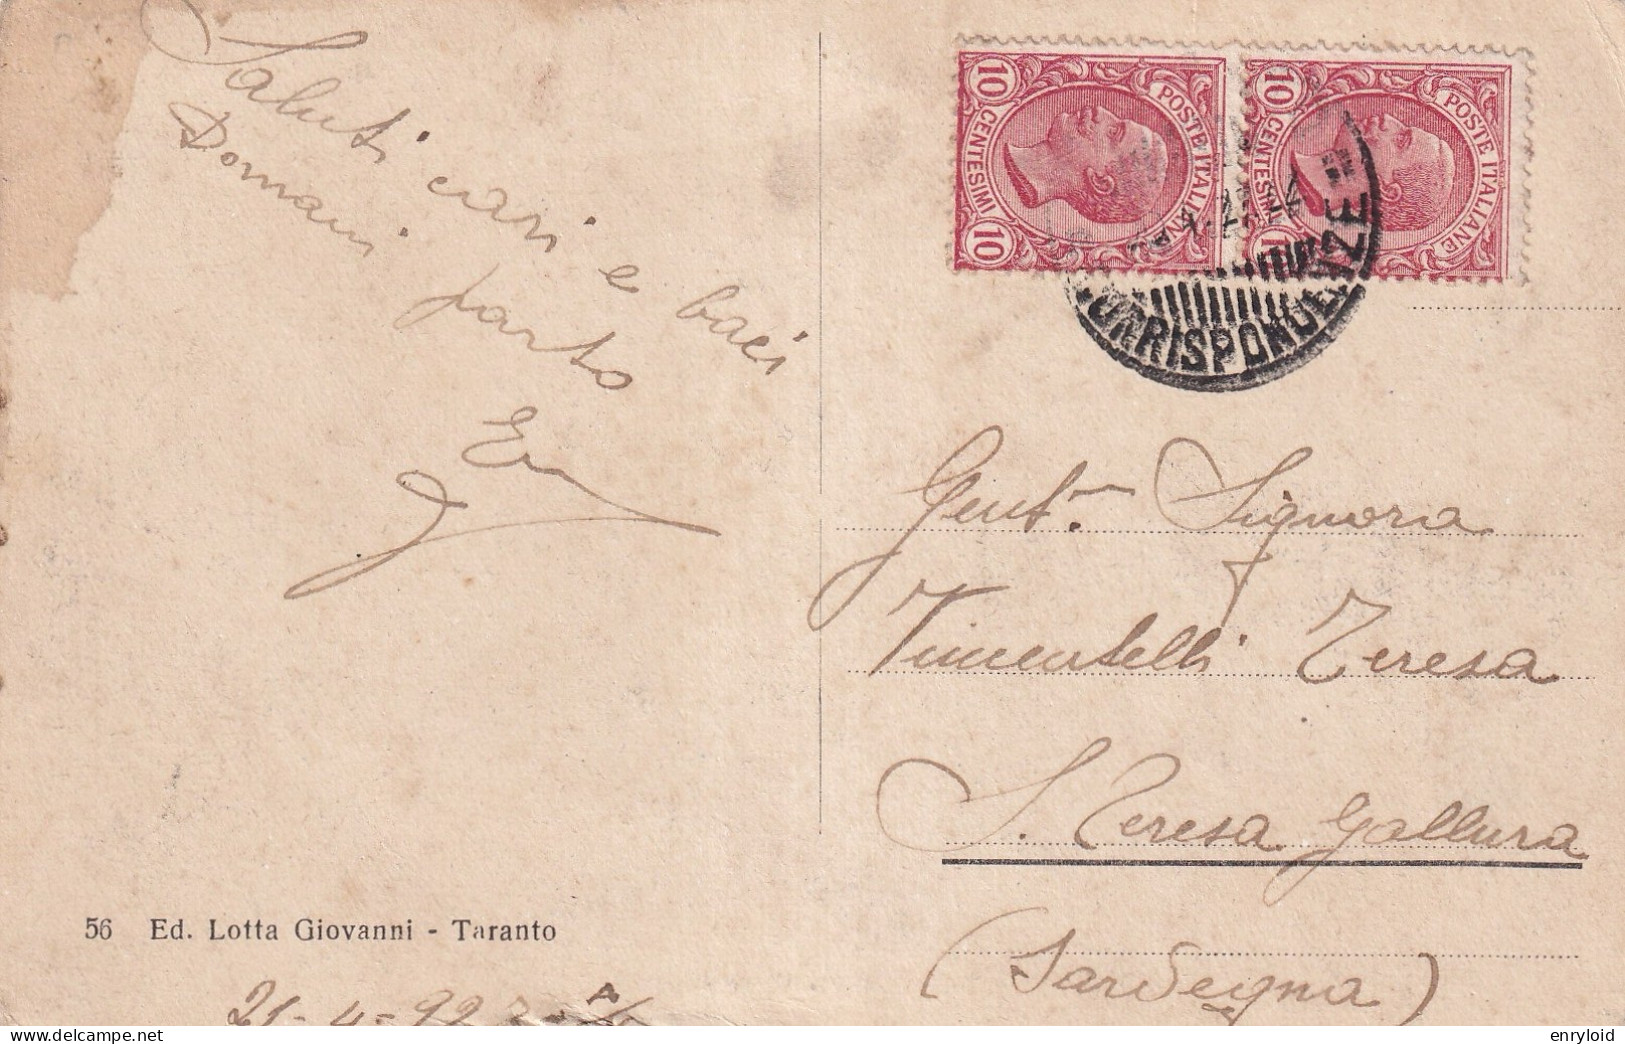 Saluti cari e baci
Domani parto
10 CENTESIMI 10
POSTE ITALIANE
10 CENTESIMI
POSTE ITALIANE
CORRISPONDENZE
Gent.ma Signora
Vincentelli Teresa
S. Teresa Gallura
(Sardegna)
56 Ed. Lotta Giovanni - Taranto
enryloid